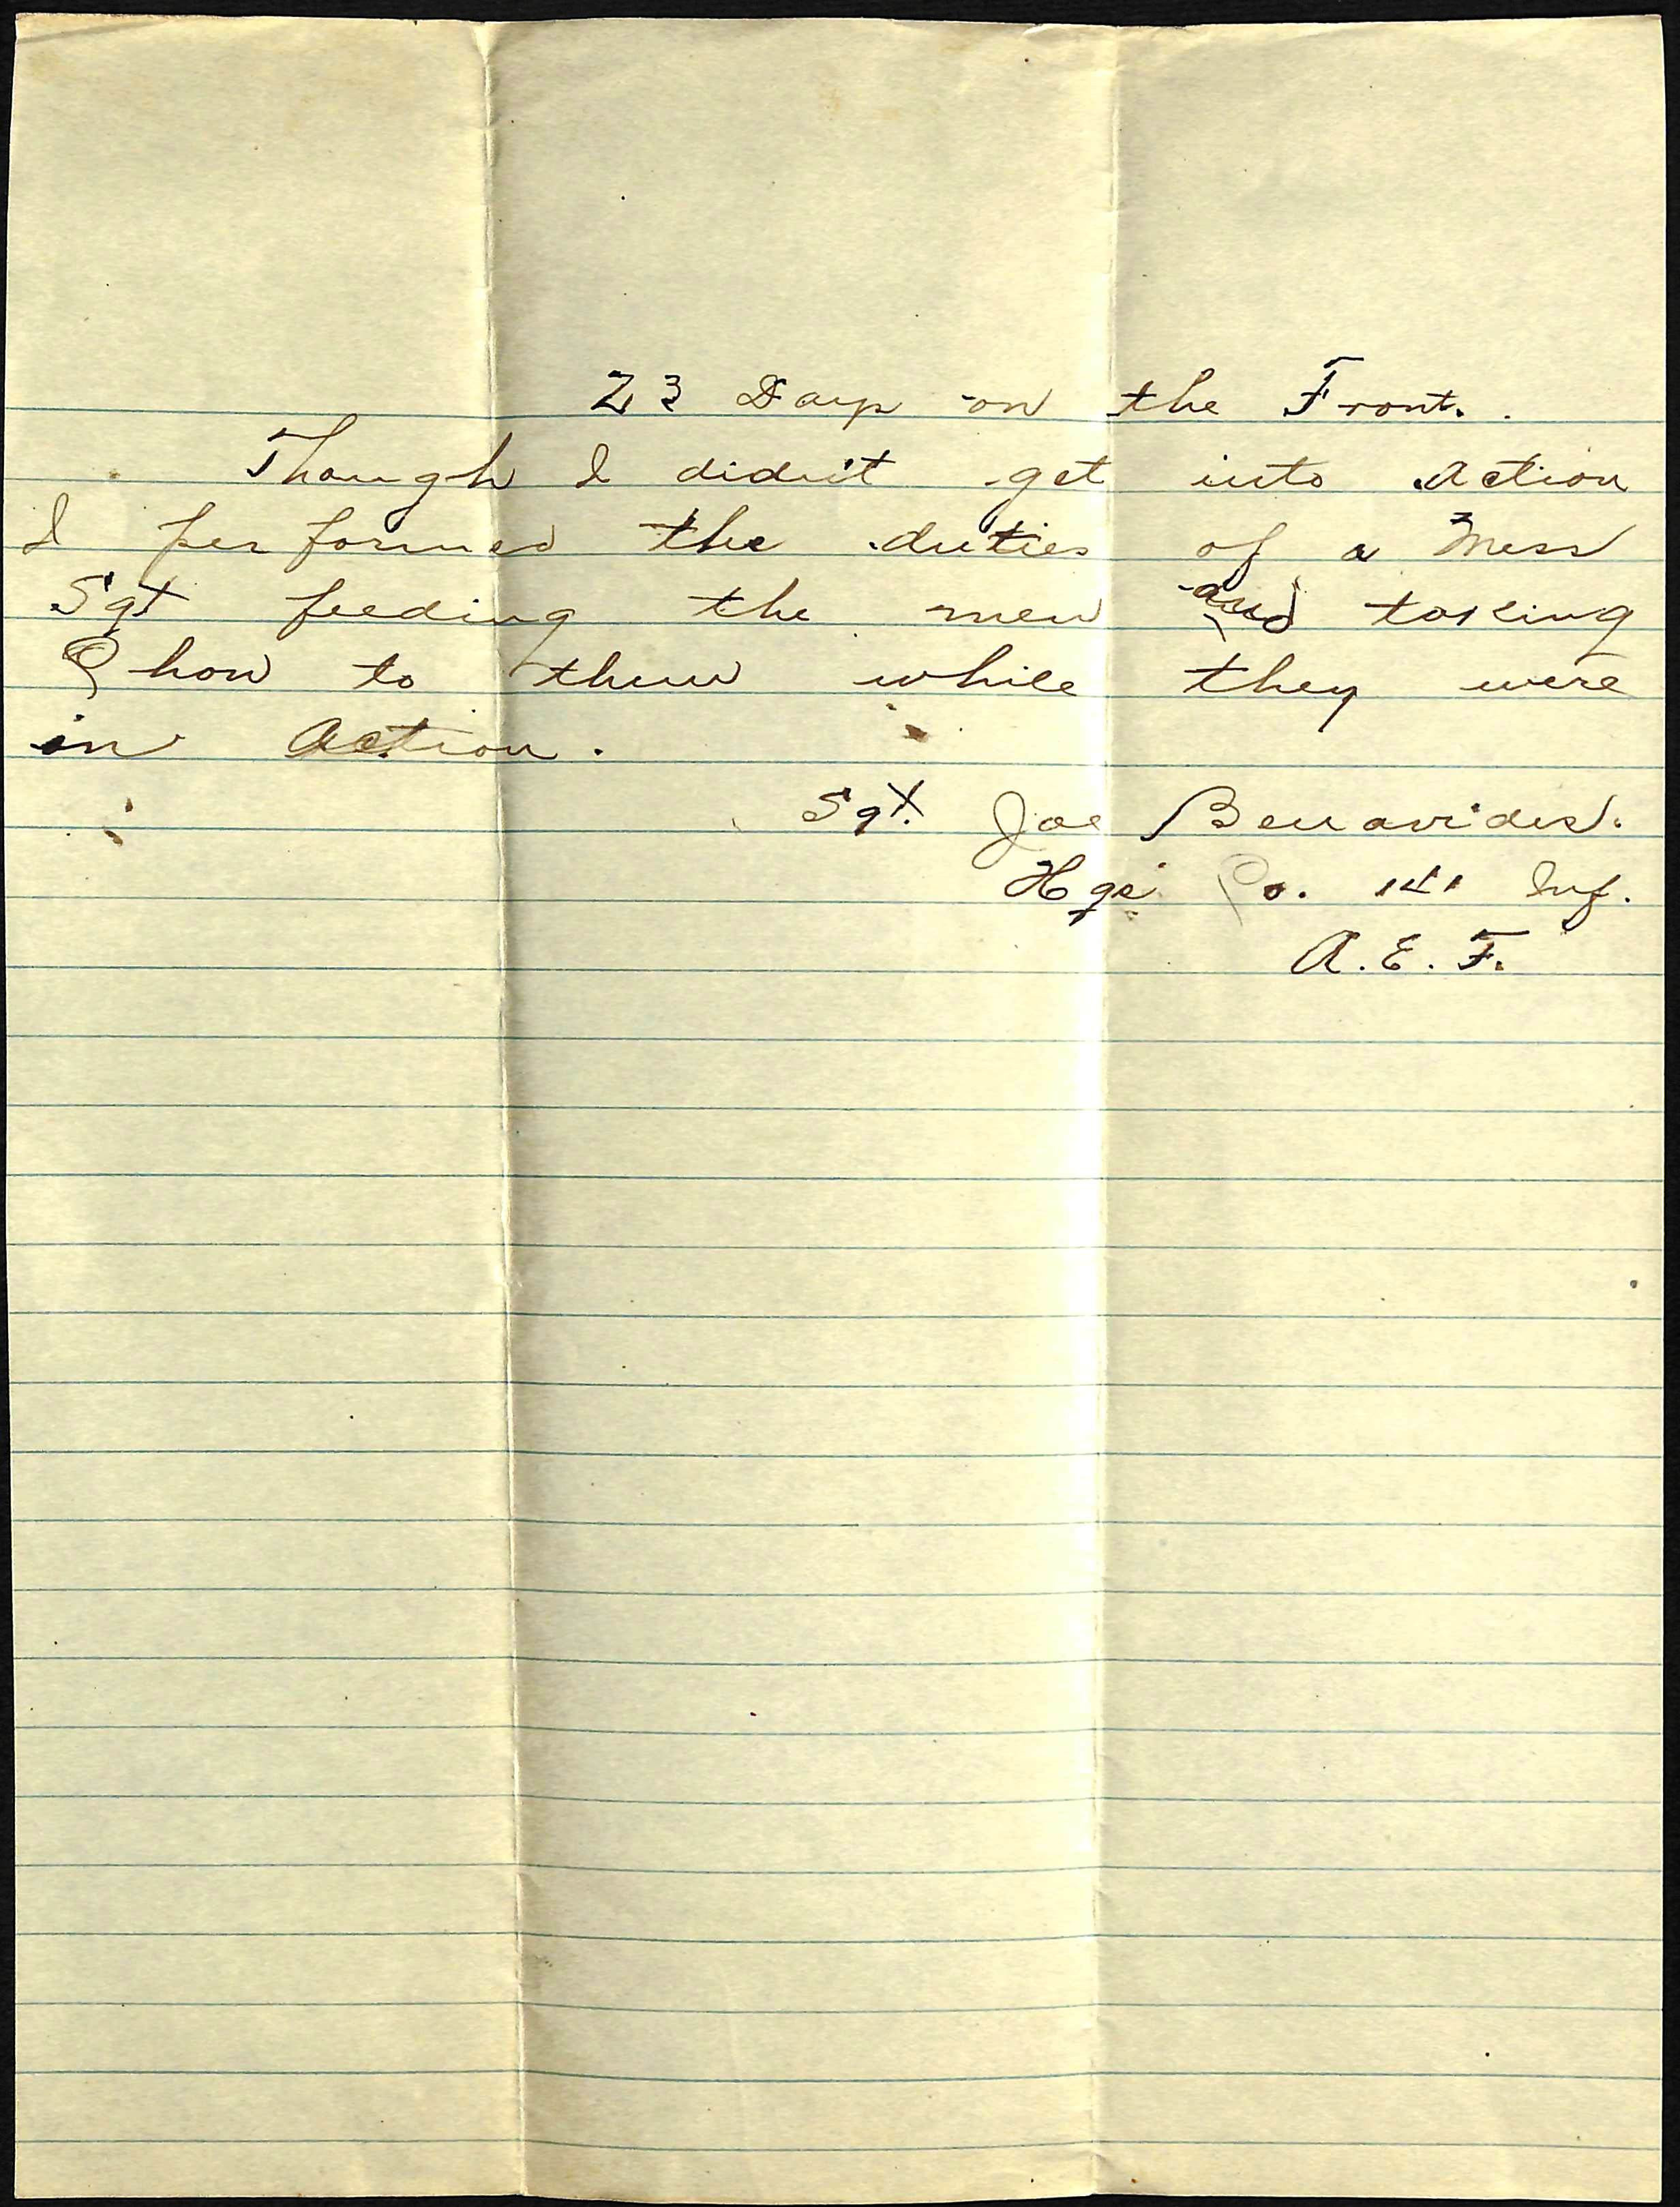 23 Days on the Front.
Though I didn't get into action
I performed the duties of a Mess
Sgt feeding the men and taking
Chow to them while they were
in Action.
Sgt. Joe Benavides.
Hqs Co. 141 Inf.
A.E.F.